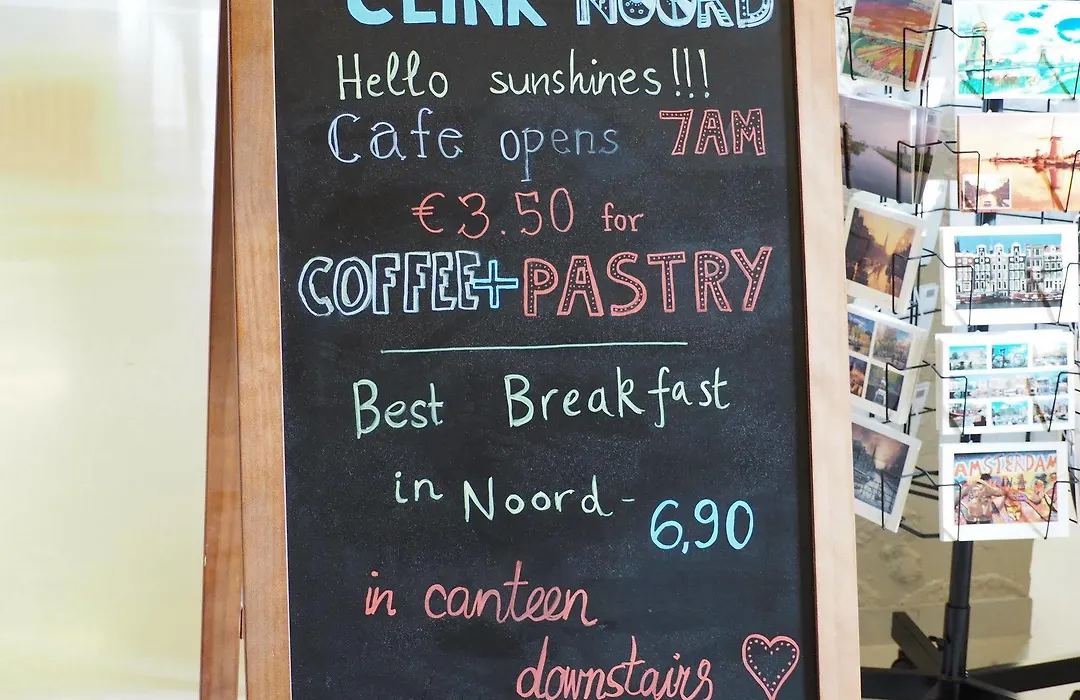 CLINK NOORD
Hello sunshines!!!
Cafe opens 7AM
€3.50 for
COFFEE+PASTRY
Best Breakfast
in Noord- 6,90
in canteen
downstairs
AMSTERDAM